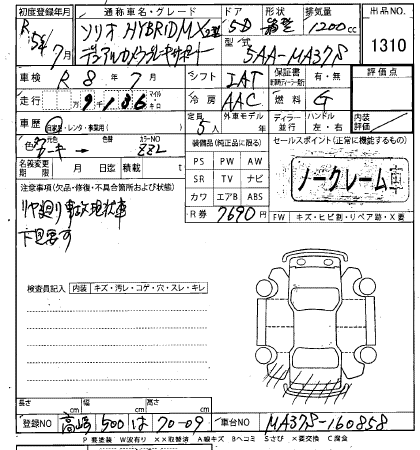 初度登録年月 通称車名・グレード ドア 形状 排気量 出品No
R 5年 7月 ソリオ HYBRID MX 5D 箱型 1200cc 1310
デュアルカメラブレーキサポート
型式 5AA-MA37S
車検 R 8年 7月 シフト IAT 保証書 有・無 評価点
走行 9千186 マイル キロ 冷房 AAC 燃料 G
車歴 自家・レンタ・事業用( ) 定員 5人 外車モデル年式 ディーラー 並行 ハンドル 左・右 内装評価
色 元色 色替 カラーNO ZZL
装備品(純正品に限る) セールスポイント(正常に機能するもの)
名義変更期限 月 日迄 積載量 t
PS PW AW
SR TV ナビ
カワ エアB ABS
ノークレーム
注意事項(欠品・修復・不具合箇所および状態)
リヤ廻り事故現状車
下見要す
R券 7690円 FW キズ・ヒビ割・リペア跡・X要
検査員記入 内装 キズ・汚レ・コゲ・穴・スレ・キレ
長さ cm 幅 cm 高さ cm
登録NO 高崎 500 は 70-09 車台NO MA37S-160858
P 要塗装 W波有り ××取替済 A線キズ Bヘコミ Sさび ×要交換 C腐食